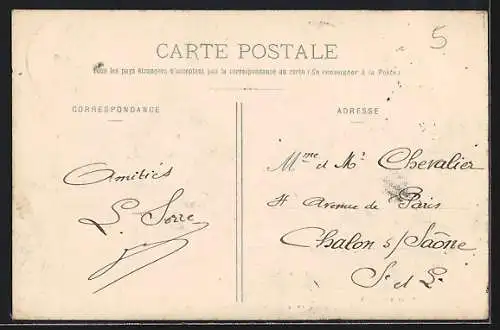 5
CARTE POSTALE
Tous les pays étrangers n'acceptent pas la correspondance au recto (Se renseigner à la Poste)
CORRESPONDANCE
ADRESSE
Amitiés
Mme et Mr Chevalier
Avenue de Paris
Chalon s/Saône
S et L.